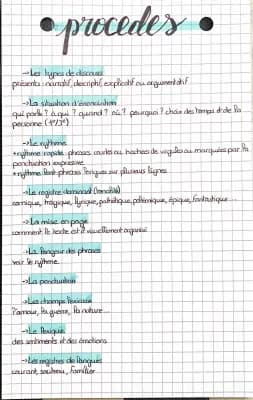 procedes
→Les types de discours
présents: narratif, descriptif, explicatif ou argumentatif
→La situation d'énonciation
qui parle? à qui? quand? où? pourquoi? choix des temps et de la
personne (1e/3e)
→Le rythme
+rythme rapide: phrases courtes ou hachées de virgules ou marquées par la
ponctuation expressive
+rythme lent: phrases longues sur plusieurs lignes
→Le registre dominant (tonalité)
comique, tragique, lyrique, pathétique, polémique, épique, fantastique
→La mise en page
comment le texte est-il visuellement organisé
→La longueur des phrases
voir le rythme
→La ponctuation
→Les champs lexicaux
l'amour, la guerre, la nature...
→Le lexique
des sentiments et des émotions
→Les registres de langues
courant, soutenu, familier